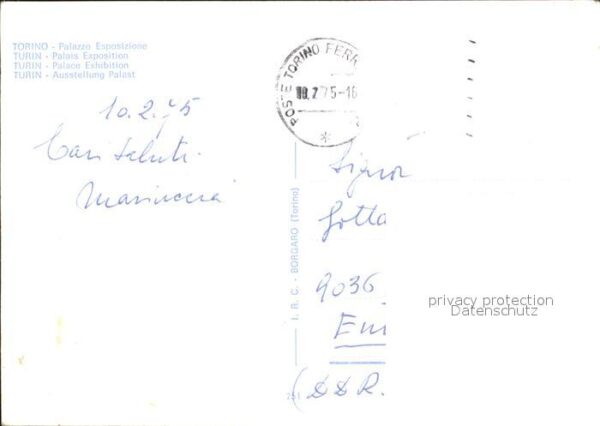 TORINO - Palazzo Esposizione
TURIN - Palais Exposition
TURIN - Palace Exhibition
TURIN - Ausstellung Palast
10.2.75
Cari saluti
Mariuccia
POSTE TORINO FERR
10.2.75-16
I. R. C. - BORGARO (Torino)
Signor
Gotta
9036
(DDR.
privacy protection
Datenschutz